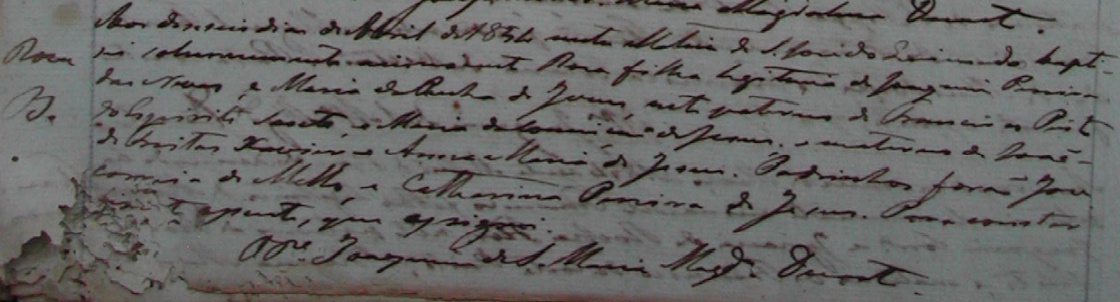 Magdalena Duart.
Aos dezaseis dias de Abril de 1854 nesta Matriz de S. José do baptizei
Rosa
solemnemente Rosa filha legitima de Joaquim Pereira
das Neves, e Maria da Penha de Jesus, neta paterna de Francisco
B.
do Espirito Santo, e Maria da Conceicão de Jesus, e materna de José
de Freitas Xavier e Anna Maria de Jesus. Padrinhos forão José
Correia de Mello, e Catharina Pereira de Jesus. Para constar
fiz este assento, que assignei.
O Pe. Joaquim de S. Maria Magd. Duart.